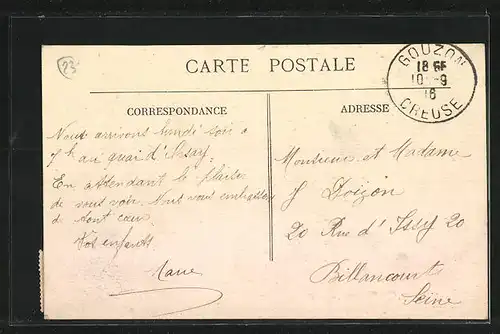 23
CARTE POSTALE
GOUZON
18
10 -9
16
CREUSE
CORRESPONDANCE
ADRESSE
Nous arrivons lundi soir a
7h au quai d'Orsay.
En attendant le plaisir
de vous voir. Nous vous embrassons
de tout cœur.
Vos enfants
Monsieur et Madame
J Doizon
20 Rue d'Issy 20
Billancourt
Seine